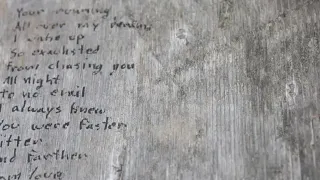 Your running
All over my
I wake up
So exausted
From chasing you
All night
to no
I always knew
You were faster
itter
nd farther